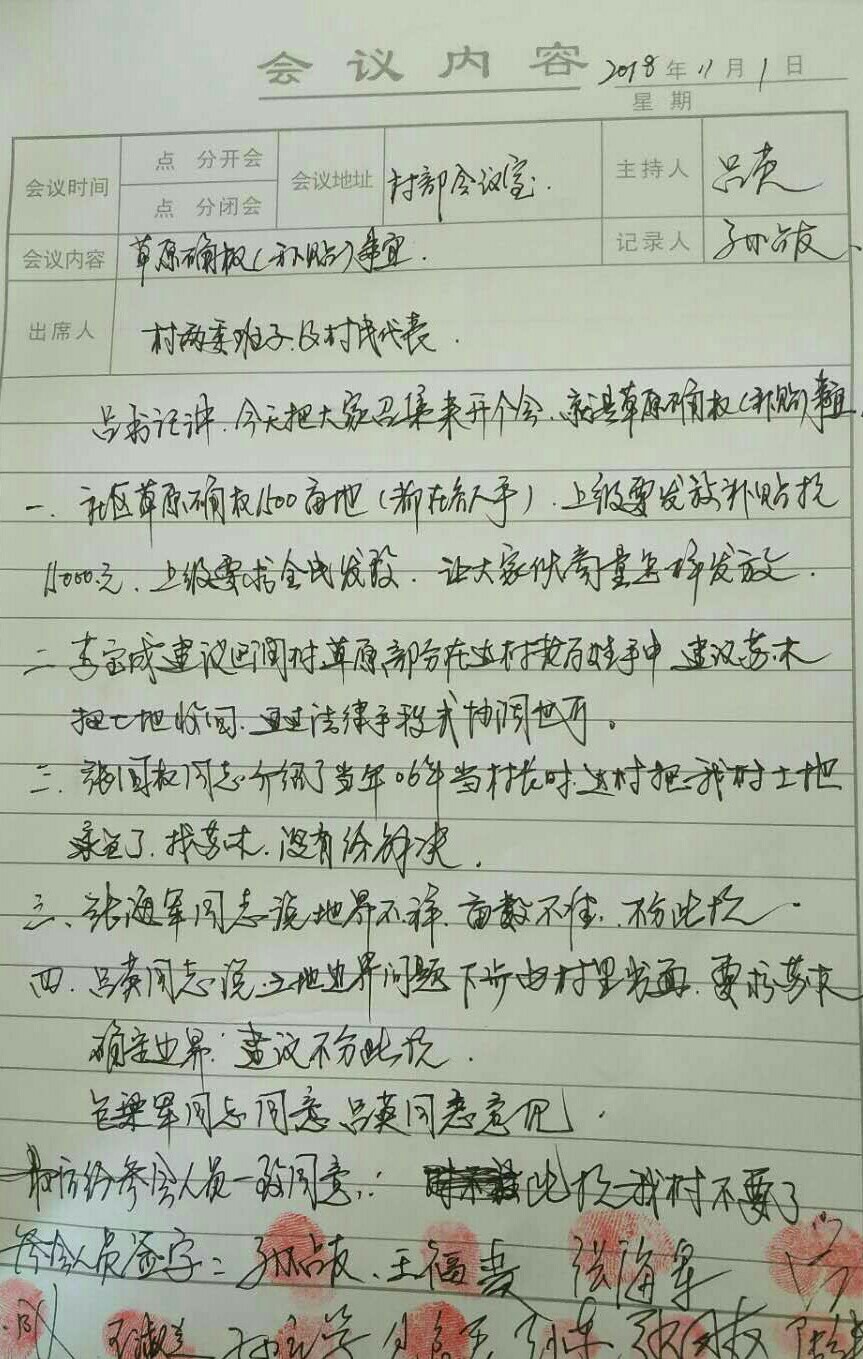 会议内容 2018年11月1日
星期
会议时间 点 分开会 会议地址 村部会议室. 主持人 吕英
点 分闭会
会议内容 草原确权(补贴)事宜. 记录人 孙占友
出席人 村两委班子及村民代表.
吕书记讲.今天把大家召集来开个会.就是草原确权(补贴)事宜.
一.社区草原确权1500亩地(都在各人手).上级要发放补贴款
11000元.上级要求全民发放.让大家伙商量怎样发放.
二李宝成建议 村草原部分在 村老百姓手中 建议苏木
把土地收回.通过法律手段或协调也可。
三.张国权同志介绍了当年06年当村长时. 村把我村土地
承包了.找苏木.没有给解决.
三、张海军同志说地界不祥.亩数不准.不分此款.
四.吕英同志说.土地边界问题下步由村里出面.要求苏木
确定边界.建议不分此款.
包 军同志同意吕英同志意见.
最后经参会人员一致同意: 此款我村不要了
参会人员签字: 孙占友、王福 张海军